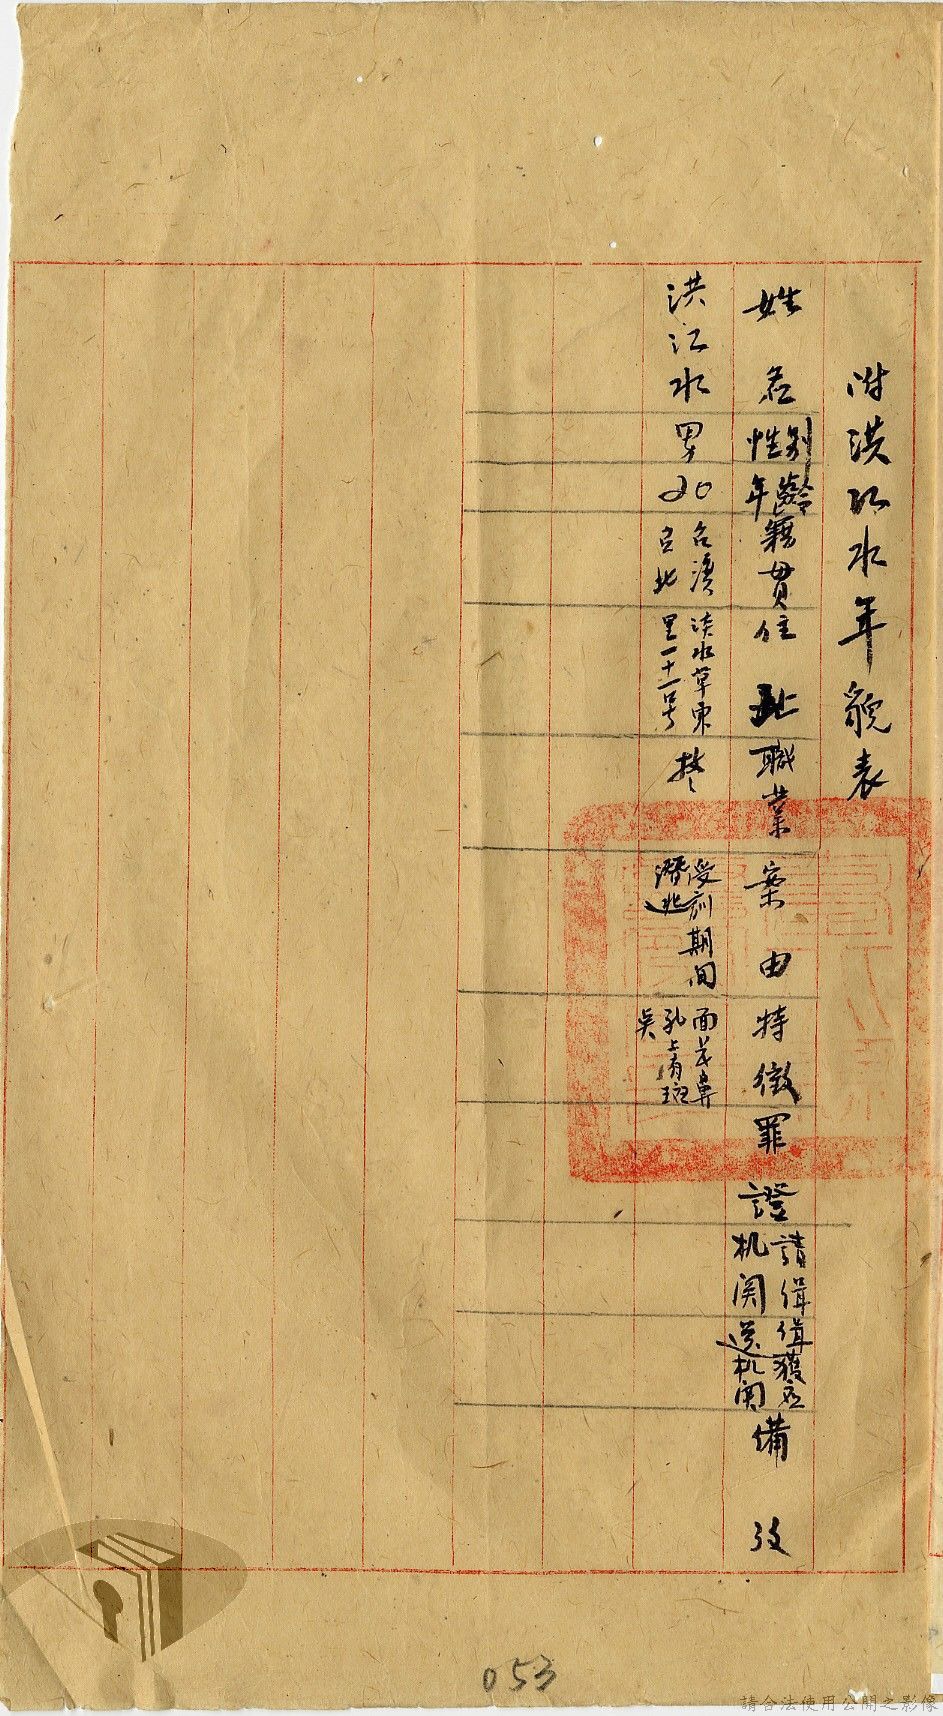 附洪江水年貌表
姓名
性別
年齡
籍貫
住址
職業
案由
特徵
罪證
請緝
机関
緝獲应
送机関
備攷
洪江水
男
20
台湾
台北
淡水草東
里一十一号
受訓期間
潛逃
面芒鼻
孔上有斑
053
請合法使用公開之影像